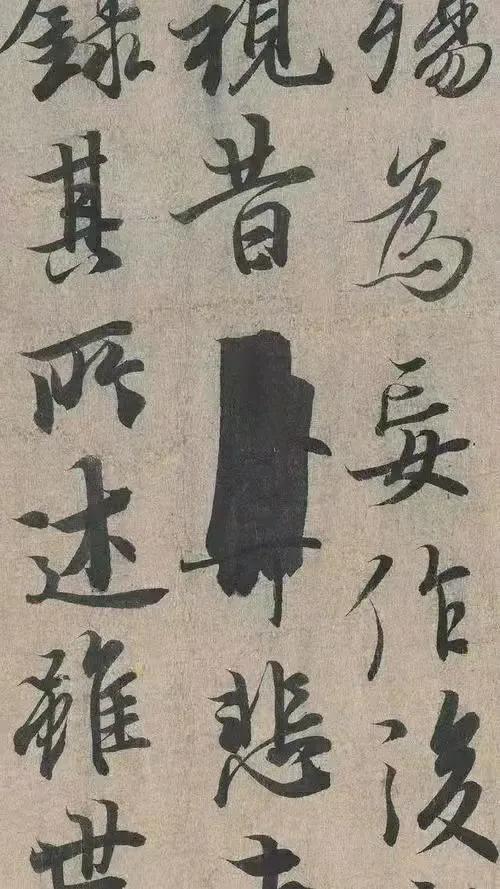 殤為妄作後
視昔悲
錄其所述雖世